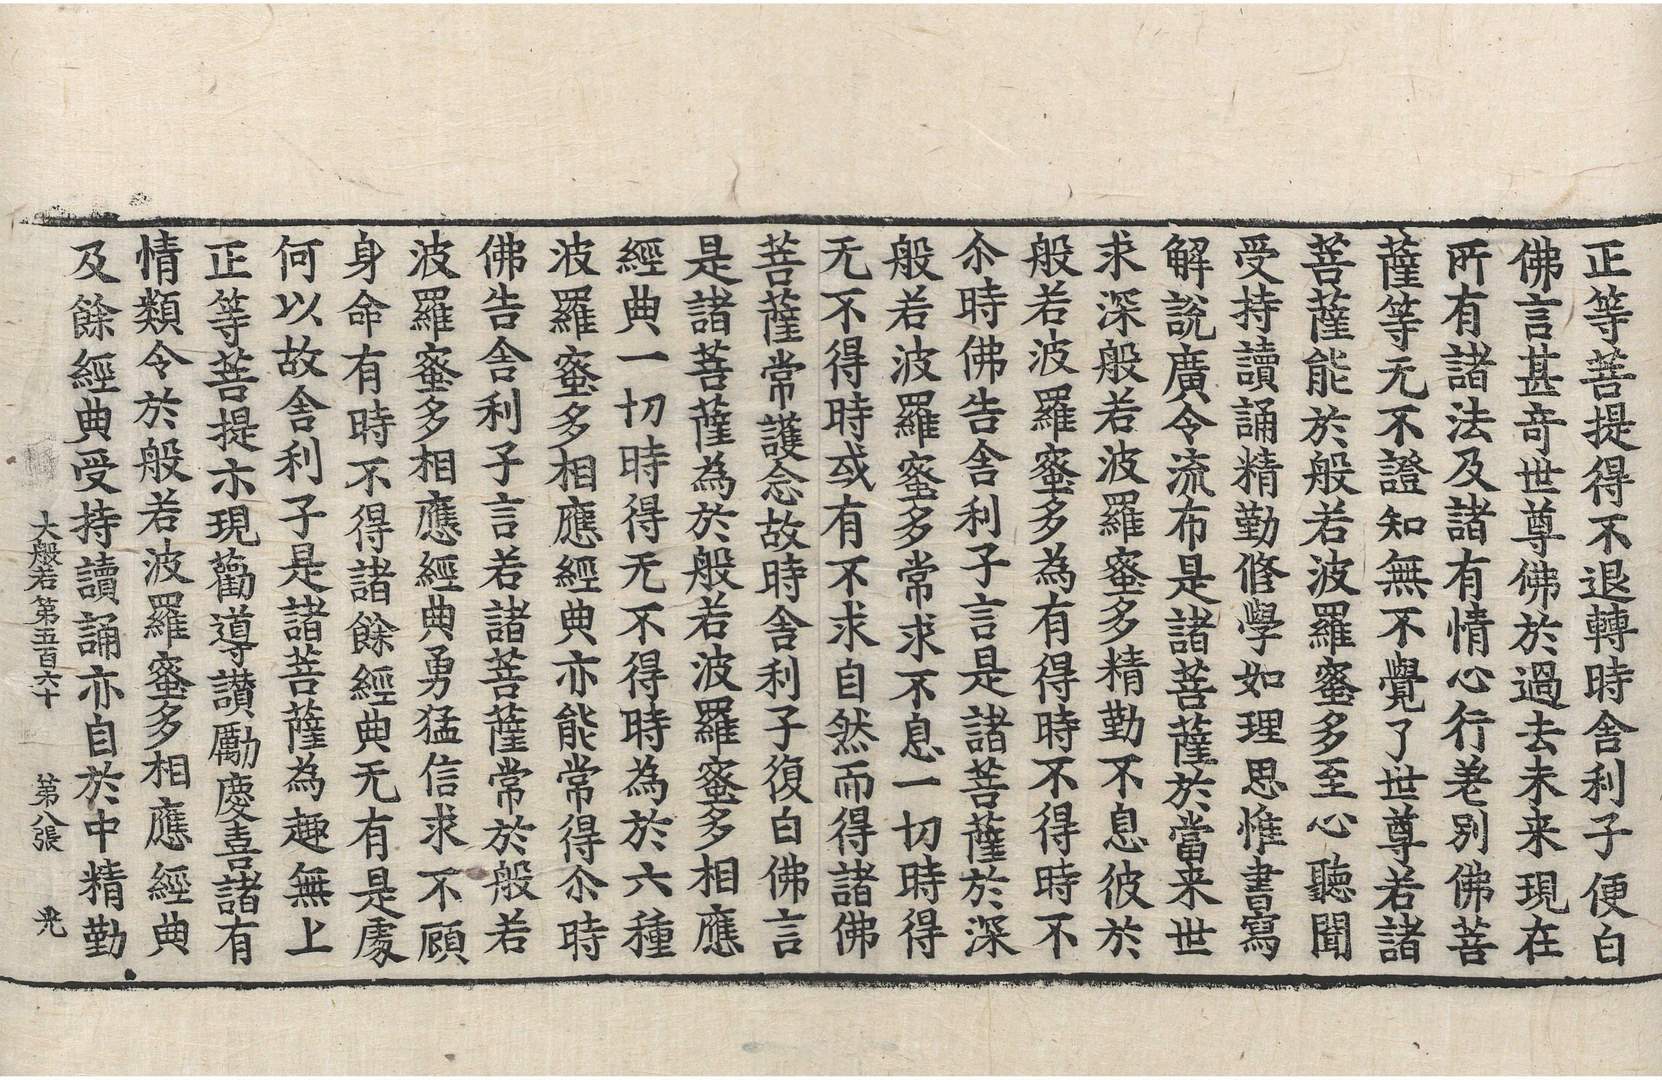 正等菩提得不退轉時舍利子便白
佛言甚奇世尊佛於過去未来現在
所有諸法及諸有情心行差别佛菩
薩等无不證知無不覺了世尊若諸
菩薩能於般若波羅蜜多至心聽聞
受持讀誦精勤修學如理思惟書寫
解說廣令流布是諸菩薩於當来世
求深般若波羅蜜多精勤不息彼於
般若波羅蜜多為有得時不得時不
尒時佛告舍利子言是諸菩薩於深
般若波羅蜜多常求不息一切時得
无不得時或有不求自然而得諸佛
菩薩常護念故時舍利子復白佛言
是諸菩薩為於般若波羅蜜多相應
經典一切時得无不得時為於六種
波羅蜜多相應經典亦能常得尒時
佛告舍利子言若諸菩薩常於般若
波羅蜜多相應經典勇猛信求不顧
身命有時不得諸餘經典无有是處
何以故舍利子是諸菩薩為趣無上
正等菩提示現勸導讃勵慶喜諸有
情類令於般若波羅蜜多相應經典
及餘經典受持讀誦亦自於中精勤
大般若第五百六十 第八張 光